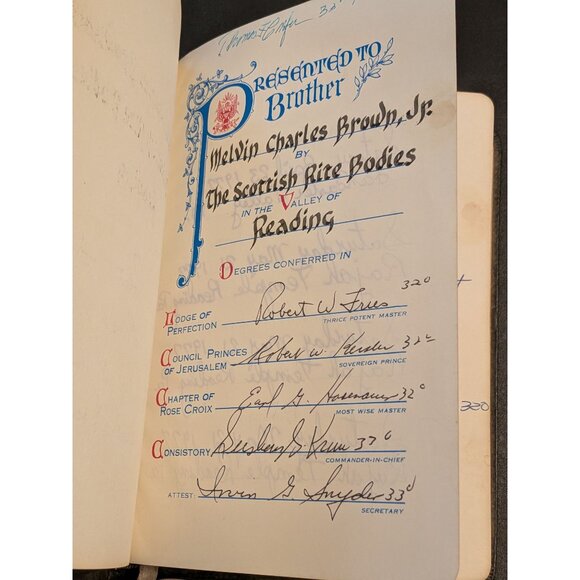 32°
PRESENTED TO
Brother
Melvin Charles Brown, Jr.
BY
The Scottish Rite Bodies
IN THE VALLEY OF
Reading
DEGREES CONFERRED IN
LODGE OF PERFECTION Robert W Fries 32°
THRICE POTENT MASTER
COUNCIL PRINCES OF JERUSALEM Robert W. 32°
SOVEREIGN PRINCE
CHAPTER OF ROSE CROIX Earl G. 32°
MOST WISE MASTER
CONSISTORY 32°
COMMANDER-IN-CHIEF
ATTEST: Irvin G. Snyder 33°
SECRETARY
320